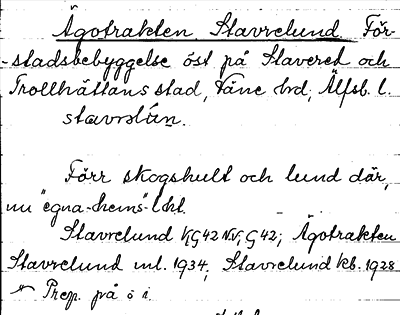 Ägotrakten Stavrelund. För-
-stadsbebyggelse öst på Stavered och
Trollhättans stad, Väne hrd, Älfsb. l.
stavrolún.
Förr skogshult och lund där,
nu "egna-hems"-
Stavrelund KG42NV, G42; Ägotrakten
Stavrelund ml. 1934; Stavrelund kb. 1928
Prep. på o i.